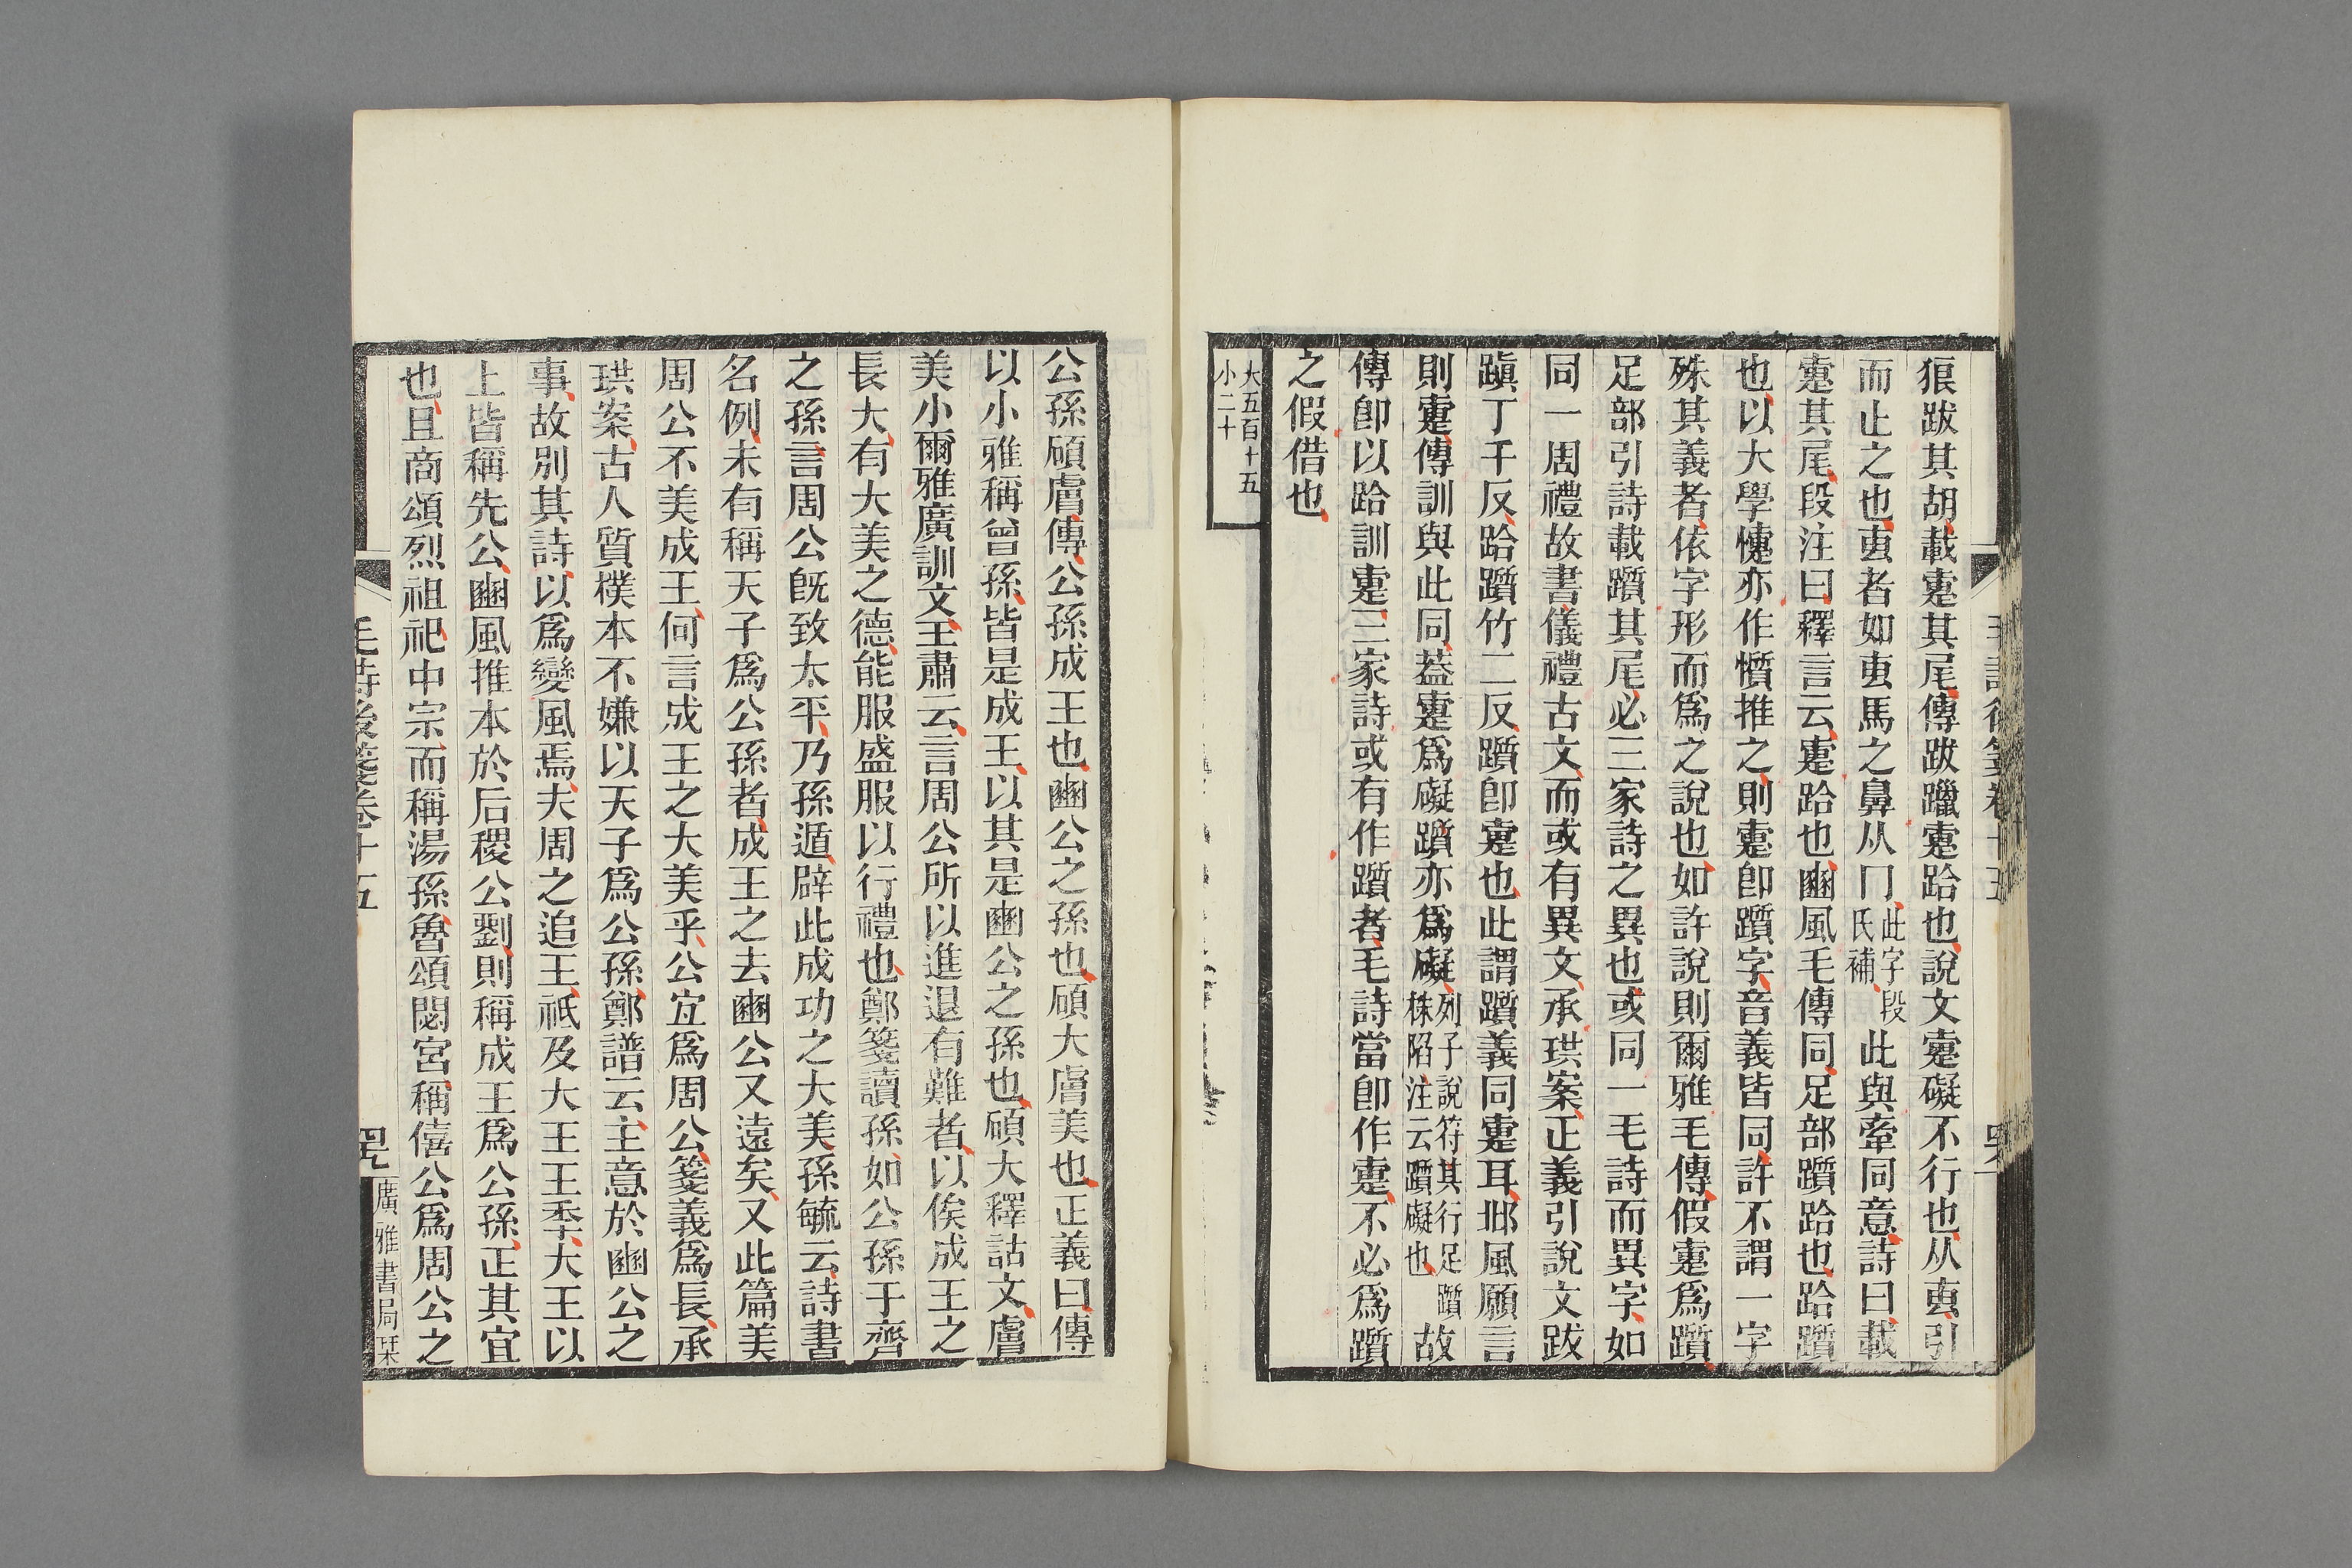 狼跋其胡載疐其尾傳跋躐疐跲也說文疐礙不行也从叀引
而止之也叀者如叀馬之鼻从冂此字段氏補此與牽同意詩曰載
疐其尾段注曰釋言云疐跲也豳風毛傳同足部躓跲也跲躓
也以大學懥亦作懫推之則疐卽躓字音義皆同許不謂一字
殊其義者依字形而爲之說也如許說則爾雅毛傳假疐爲躓
足部引詩載躓其尾必三家詩之異也或同一毛詩而異字如
同一周禮故書儀禮古文而或有異文承珙案正義引說文跋
蹎丁千反跲躓竹二反躓卽疐也此謂躓義同疐耳邶風願言
則疐傳訓與此同葢疐爲礙躓亦爲礙列子說符其行足躓株陷注云躓礙也故
傳卽以跲訓疐三家詩或有作躓者毛詩當卽作疐不必爲躓
之假借也
大五百十五
小二十
公孫碩膚傳公孫成王也豳公之孫也碩大膚美也正義曰傳
以小雅稱曾孫皆是成王以其是豳公之孫也碩大釋詁文膚
美小爾雅廣訓文王肅云言周公所以進退有難者以俟成王之
長大有大美之德能服盛服以行禮也鄭箋讀孫如公孫于齊
之孫言周公旣致太平乃孫遁辟此成功之大美孫毓云詩書
名例未有稱天子爲公孫者成王之去豳公又遠矣又此篇美
周公不美成王何言成王之大美乎公宜爲周公箋義爲長承
珙案古人質樸本不嫌以天子爲公孫鄭譜云主意於豳公之
事故別其詩以爲變風焉夫周之追王祗及大王王季大王以
上皆稱先公豳風推本於后稷公劉則稱成王爲公孫正其宜
也且商頌烈祖祀中宗而稱湯孫魯頌閟宮稱僖公爲周公之
毛詩後箋卷十五
廣雅書局栞